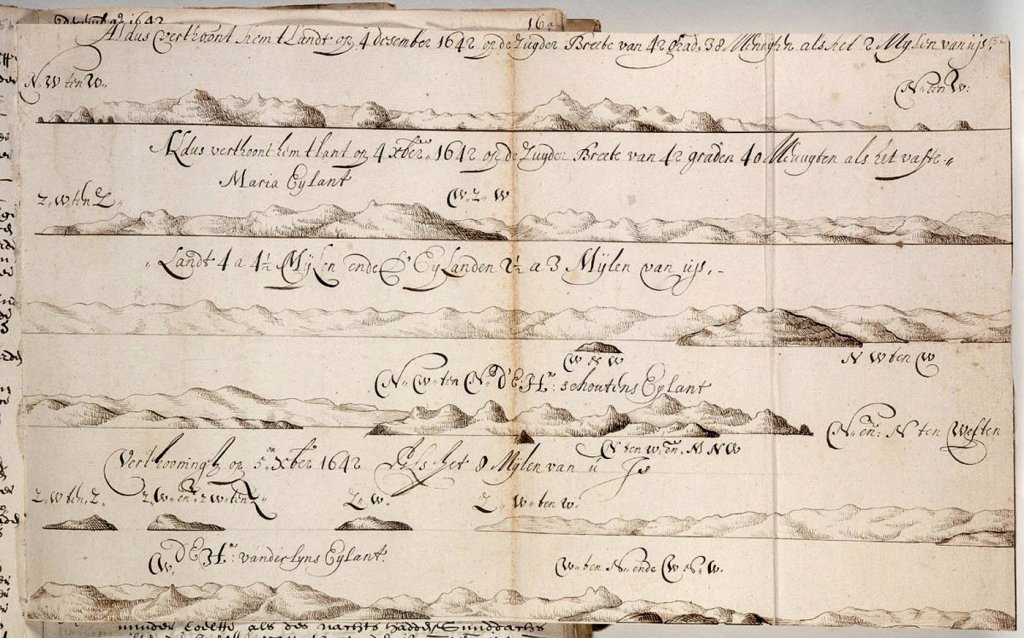 december 1642
16
Aldus verthoont hem t Landt op 4 desember 1642 op de Zuyder Breete van 42 grad 38 Menuyten als het 2 Mylen van u is
N. W ten W.
N. ten W.
Aldus verthoont hem t lant op 4 xber 1642 op de Zuyder Breete van 42 graden 40 Menuyten als het vaste
Maria Eylant
Z. W ten Z.
W. Z. W
Landt 4 a 4½ Mylen ende d' Eylanden 2½ a 3 Mylen van u is.
W N W
N W ten W
N. W. ten N. d'E. Hr: Schoutens Eylant
N. en: N ten Westen
N ten W en N N W
Verthooningh op 5 xber 1642 Als het 8 Mylen van u is
Z. W ten Z.
Z. W. en Z W ten Z
Z. W.
Z. W. ten W.
d'E. Hr: vander Lyns Eylant.
W. ten N. ende W. N. W.
minder Coelte als des nachts hadde Smiddachs